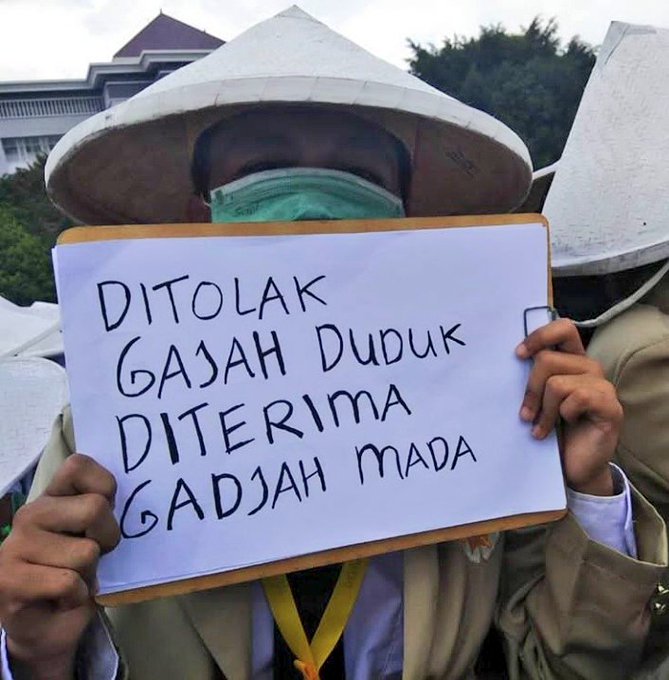 DITOLAK
GAJAH DUDUK
DITERIMA
GADJAH MADA